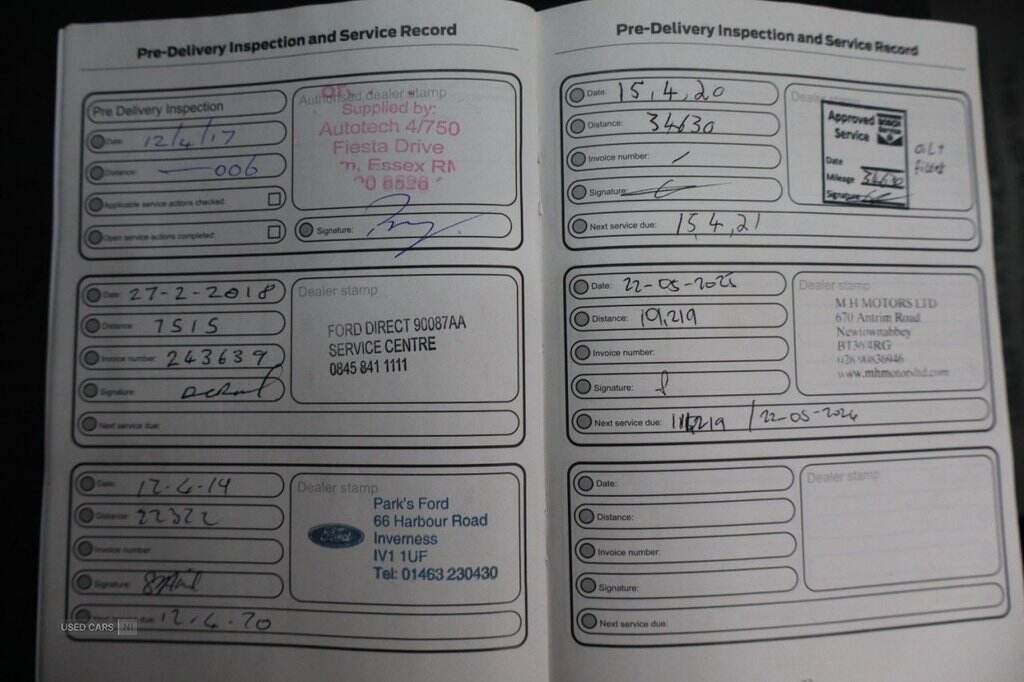 Pre-Delivery Inspection and Service Record
Pre Delivery Inspection
Date: 12/4/17
Distance: 006
Applicable service actions checked:
Open service actions completed:
Authorised dealer stamp
Supplied by:
Autotech 4/750
Fiesta Drive
Essex RM
Signature:
Date: 27-2-2018
Distance: 7515
Invoice number: 243639
Signature:
Next service due:
Dealer stamp
FORD DIRECT 90087AA
SERVICE CENTRE
0845 841 1111
Date: 12.4.19
Distance: 22322
Invoice number:
Signature:
due: 12.4.20
Dealer stamp
Ford
Park's Ford
66 Harbour Road
Inverness
IV1 1UF
Tel: 01463 230430
USED CARS NI
Pre-Delivery Inspection and Service Record
Date: 15,4,20
Distance: 34630
Invoice number: /
Signature:
Next service due: 15,4,21
Approved
Service
Date
Mileage 34630
Signature
OIL+
Filter
Date: 22-05-2025
Distance:
Invoice number:
Signature:
Next service due: 22-05-2026
Dealer stamp
M H MOTORS LTD
670 Antrim Road
Newtownabbey
BT36 4RG
www.mhmotorsltd.com
Date:
Distance:
Invoice number:
Signature:
Next service due:
Dealer stamp